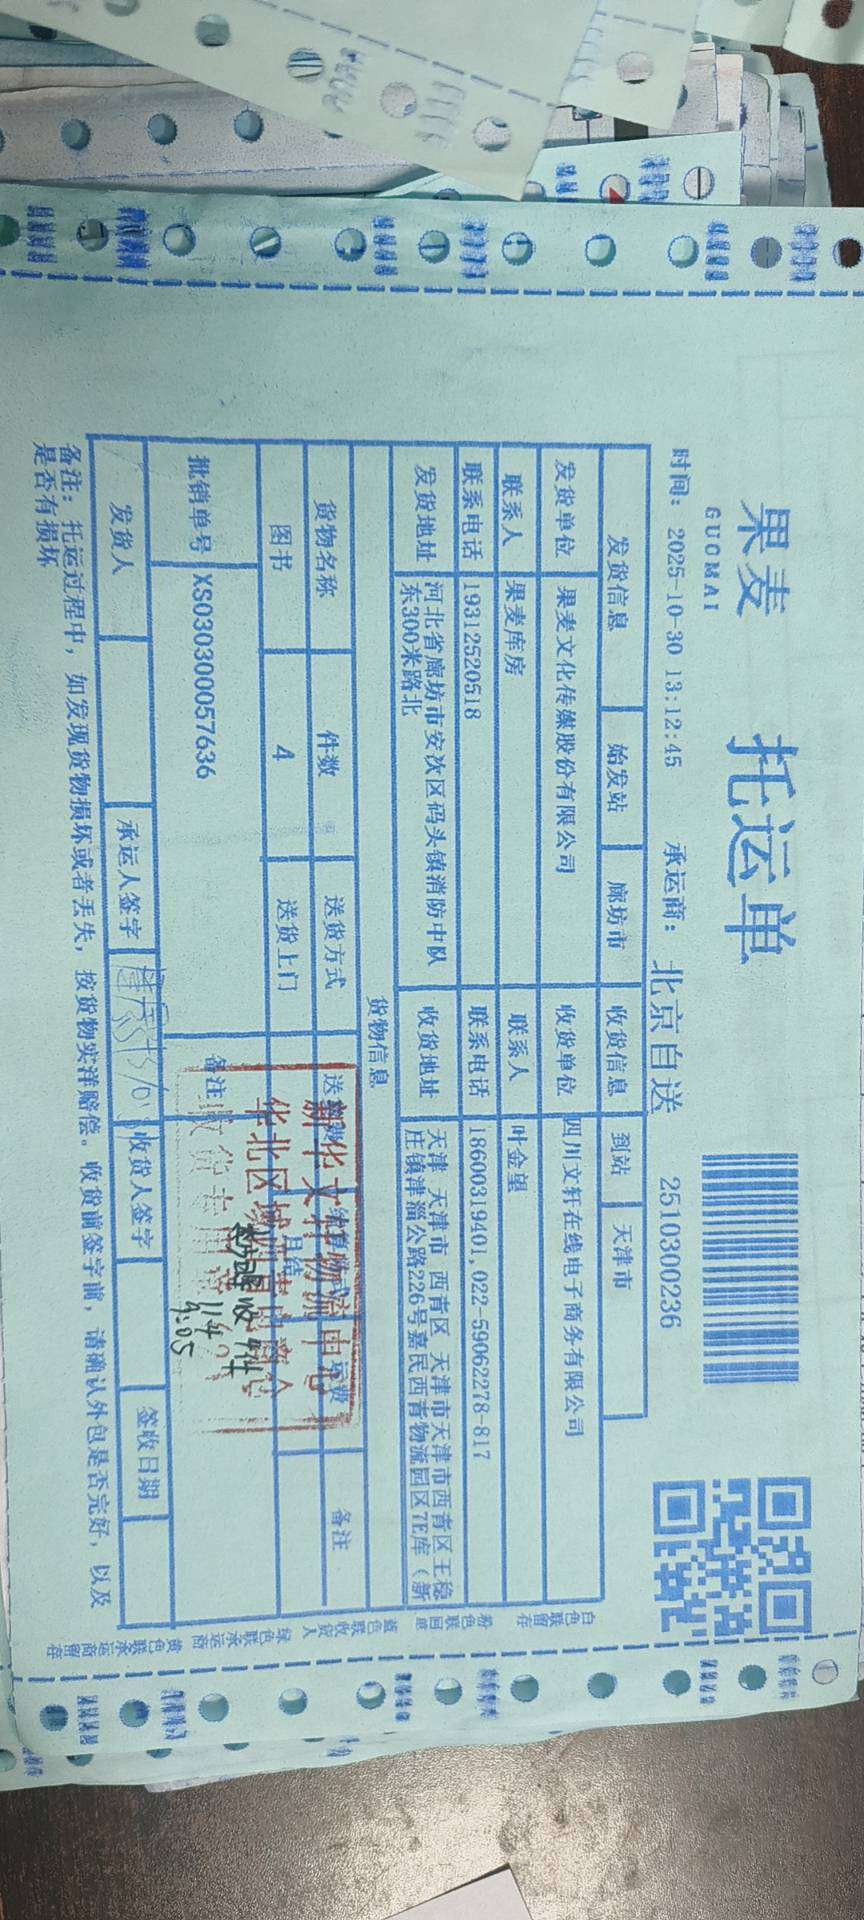 果麦 托运单
GUOMAI
时间: 2025-10-30 13:12:45 承运商: 北京自送 2510300236
发货信息 始发站 廊坊市 收货信息 到站 天津市
发货单位 果麦文化传媒股份有限公司 收货单位 四川文轩在线电子商务有限公司
联系人 果麦库房 联系人 叶金望
联系电话 19312520518 联系电话 18600319401,022-59062278-817
发货地址 河北省廊坊市安次区码头镇消防中队 收货地址 天津 天津市 西青区 天津市天津市西青区王稳
东300米路北 庄镇津淄公路226号嘉民西青物流园区7E库(新
货物信息
货物名称 件数 送货方式 运费 备注
图书 4 送货上门 月结
批销单号 XS030300057636 备注
新华文轩物流中心
华北区域
收货专用章
收4件
11.4
9:05
发货人 承运人签字 收货人签字 签收日期
备注: 托运过程中, 如发现货物损坏或者丢失, 按货物实洋赔偿。收货前签字前, 请确认外包是否完好, 以及
是否有损坏
白色联留存 粉色联回 蓝色联收货人 绿色联承运商 黄色联承运商留存